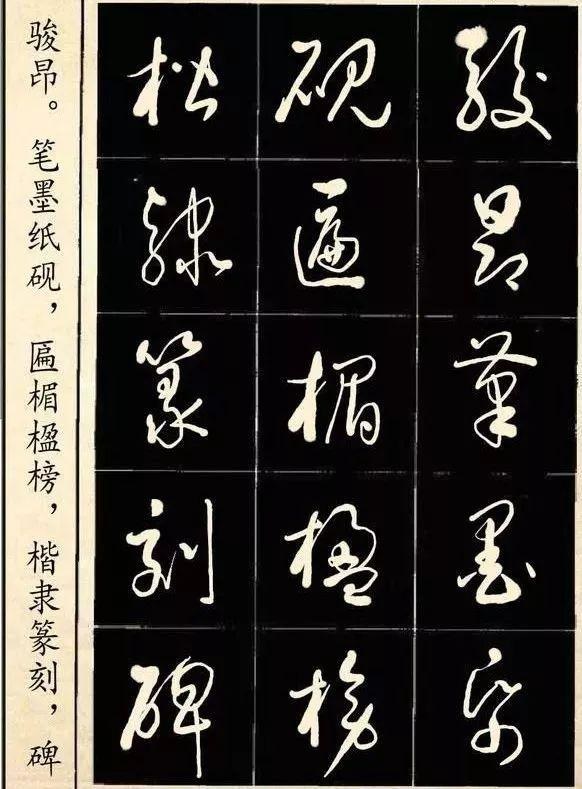 駿昂筆墨帋
硯匾楣楹榜
楷隸篆刻碑
骏昂。笔墨纸砚，匾楣楹榜，楷隶篆刻，碑